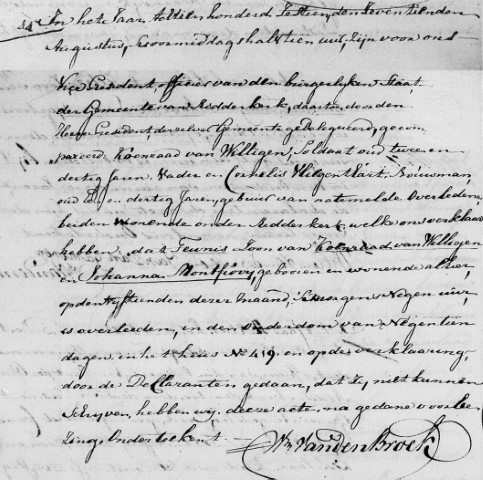 In het Jaar Achtien honderd Zestien den Seventienden
Augustus, s'voormiddags half tien uur, Zijn voor ons
Vice President, officier van den burgerlyken Staat
der Gemeente van Ridderkerk, daartoe door den
Heer President, derzelver Gemeente gedelegueerd, gecom
pareerd Koenraad van Welligen, Soldaat oud twee en
dertig Jaren Vader en Cornelis Vliegenthart, Bouwman,
oud en dertig Jaren, gebuur van natemelde Overledene
beiden wonende onder Ridderkerk, welk ons verklaard
hebben, dat Teunis Zoon van Koenraad van Welligen
en Johanna Montfoort, geboren en wonende alhier,
op den Vyftienden dezer maand, Smorgens Negen uur,
is overleeden, in den ouderdom van Negentien
dagen, in het huis No 419, en op de verklaaring,
door de Declaranten gedaan, dat Zy, niet kunnen
Schryven, hebben wij, deeze acte, na gedane voorlee
zing, Ondertekent.
Wm Van den Broek